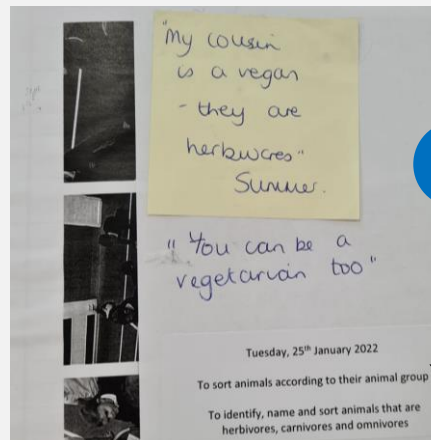 "My cousin
is a vegan
- they are
herbivores"
Summer.
"You can be a
vegetarian too"
Tuesday, 25th January 2022
To sort animals according to their animal group
To identify, name and sort animals that are
herbivores, carnivores and omnivores